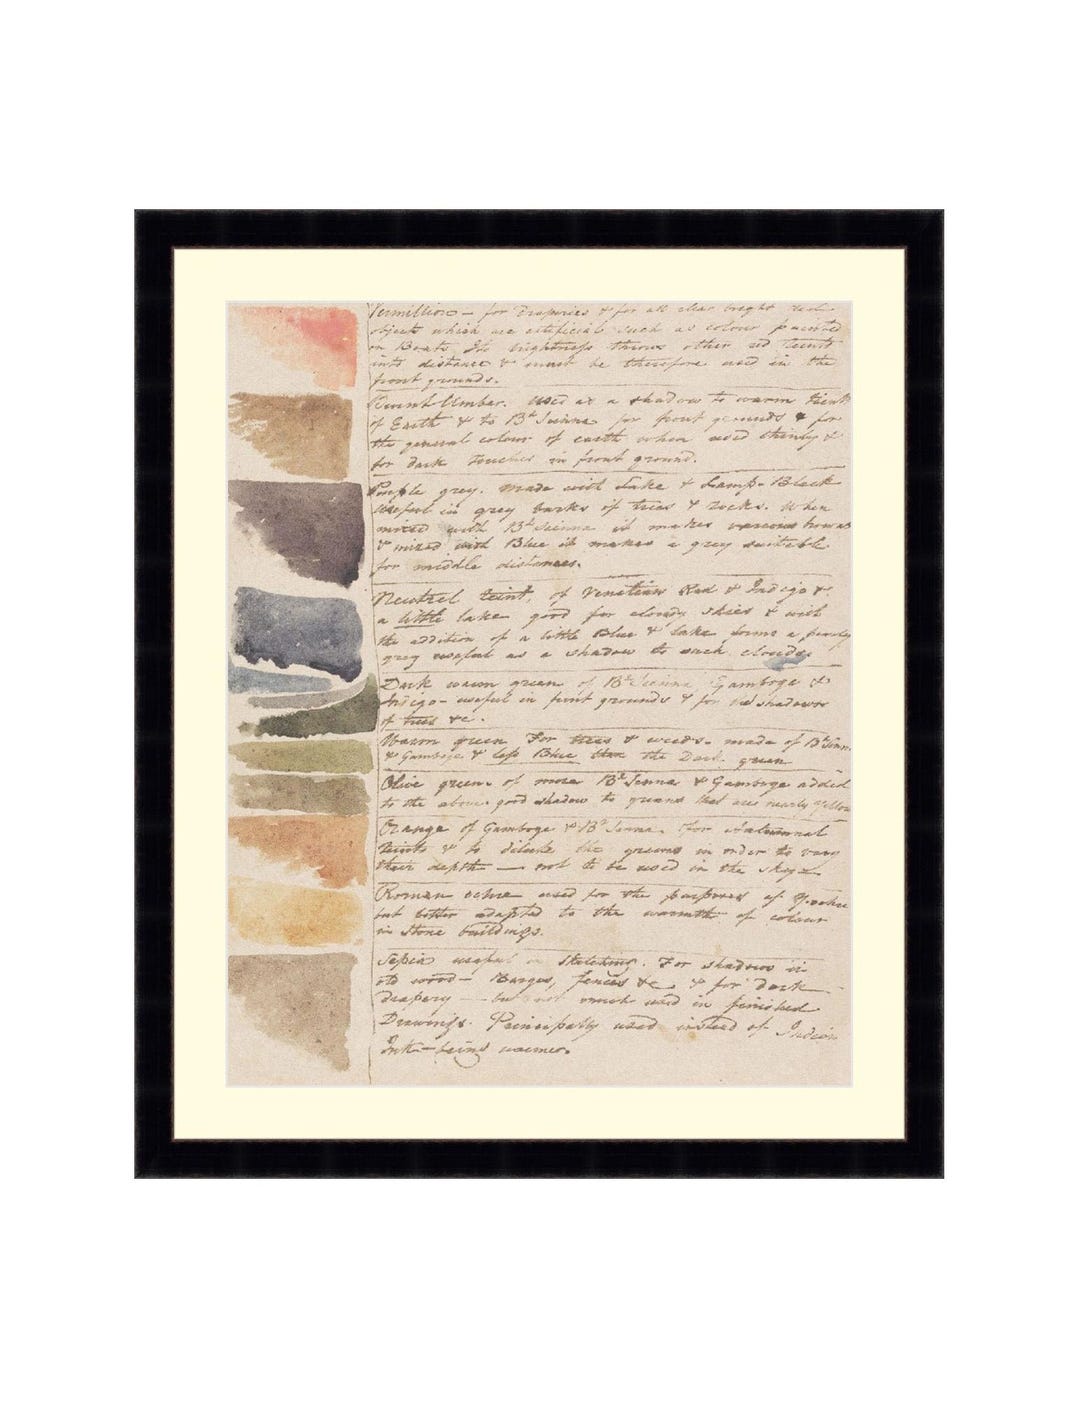 Vermillion — for Draperies & for all clear bright red
objects which are artificial such as colour painted
on Boats. Its brightness throws other red teints
into distance & must be therefore used in the
front grounds.
Burnt Umber. Used as a shadow to warm teints
of Earth & to Bt Sienna for front grounds & for
the general colour of earth when used thinly &
for dark touches in front ground.
Purple grey. made with Lake & Lamp-Black
Useful in grey barks of trees & rocks. When
mixed with Bt Sienna it makes various browns
& mixed with Blue it makes a grey suitable
for middle distances.
Neutral teint, of Venetian Red & Indigo &
a little lake good for cloudy skies & with
the addition of a little Blue & Lake forms a
grey useful as a shadow to such clouds.
Dark warm green of Bt Sienna Gamboge &
Indigo — useful in front grounds & for the shadows
of trees &c.
Warm green For trees & weeds. made of Bt Sienn
& Gamboge & less Blue than the Dark green
Olive green. of more Bt Sienna & Gamboge added
to the above. good shadow to greens that are nearly yellow
Orange of Gamboge & Bt Sienna. For Autumnal
teints & to dilute the greens in order to vary
their depth — not to be used in the skys
Roman ochre used for the purposes of Y. ochre
but better adapted to the warmth of colour
in stone buildings.
Sepia useful in sketching. For shadows in
old wood — Barges, fences &c & for dark
drapery — but not much used in finished
Drawings. Principally used instead of Indian
Ink — being warmer.